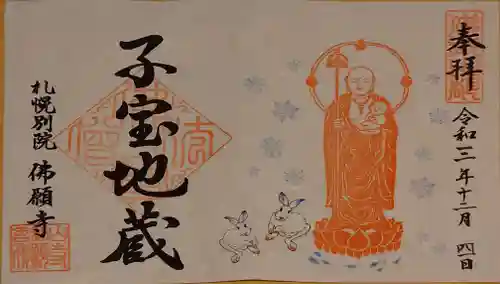 奉拝
令和三年十二月四日
子宝地蔵
札幌別院
佛願寺